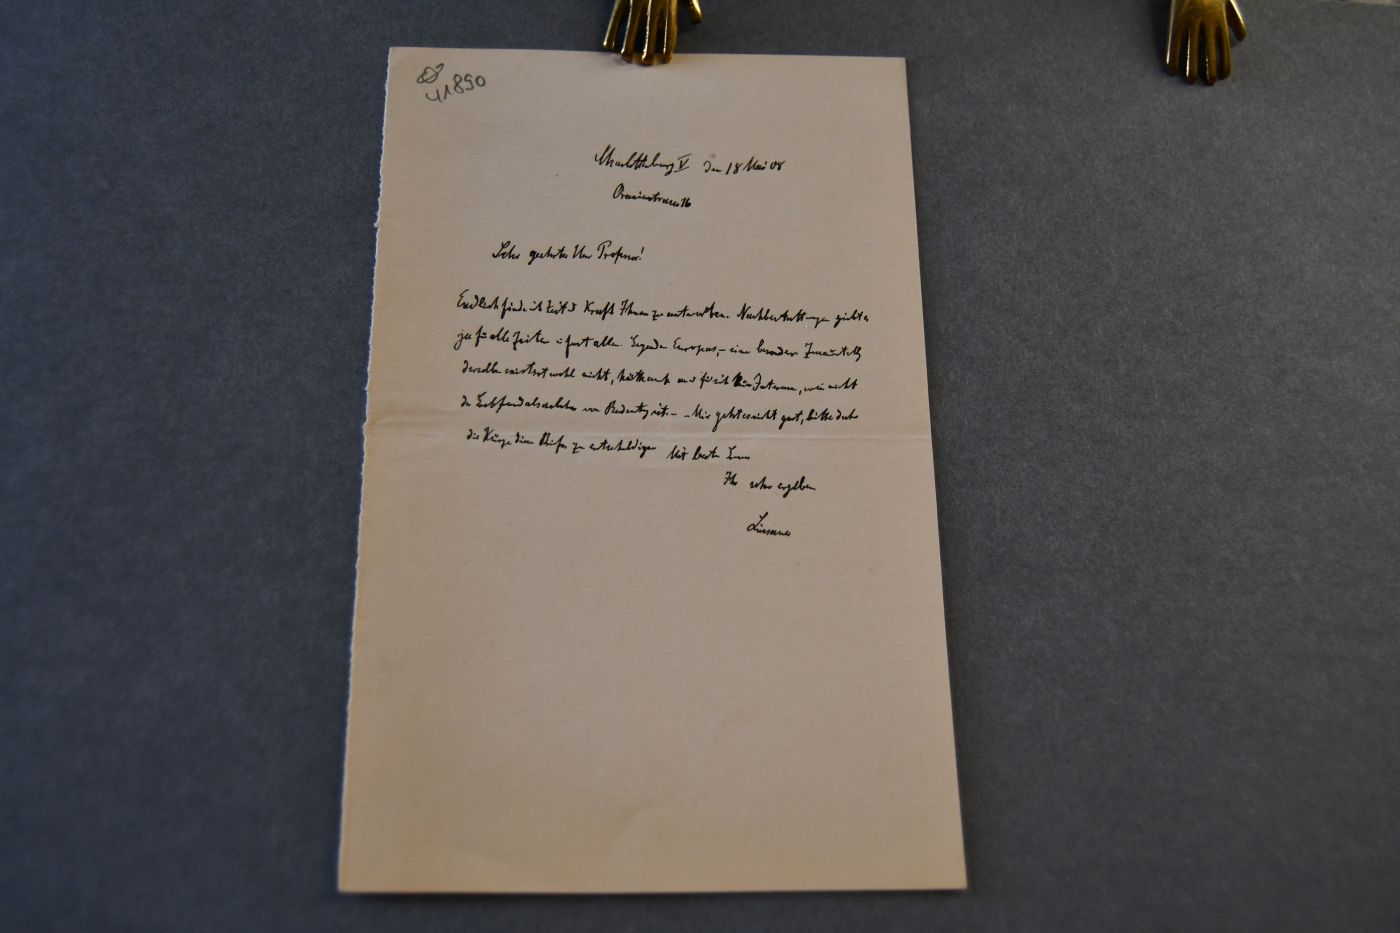 41890
Charlottenburg V den 18 Mai 08
Oranienstrasse 16
Sehr geehrter Herr Professor!
Endlich finde ich Zeit u Kraft Ihnen zu antworten. Nachbestattungen giebt es
ja für alle Zeiten u fast alle Gegenden Europas, – eine besondere
derselben existirt wohl nicht, hätte auch nur für sich kein Interesse, wenn nicht
die von Bedeutg ist. – – Mir geht es nicht gut, bitte daher
die Kürze dieses Briefes zu entschuldigen Mit besten Gruss
Ihr sehr ergebener
Lissauer